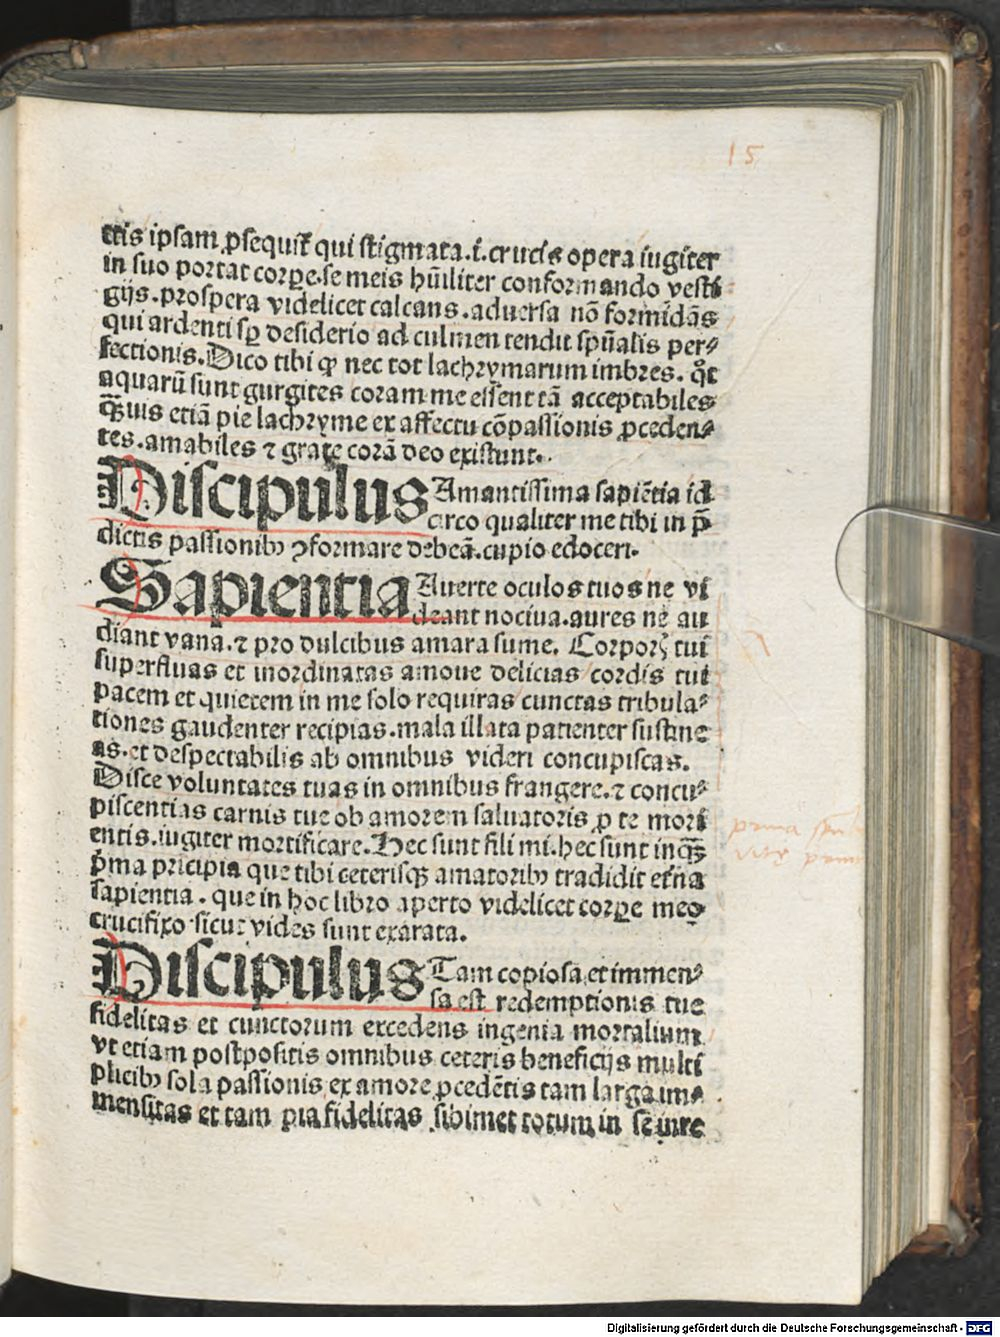 15
ctis ipsam ꝓsequit̃ qui stigmata.i.crucis opera iugiter
in suo portat corꝑe.se meis hũiliter conformando vesti
gijs.prospera videlicet calcans.aduersa nõ formidãs
qui ardenti sꝑ desiderio ad culmen tendit spũalis per⸗
fectionis.Dico tibi ꝙ nec tot lachrymarum imbres. qͦt
aquarũ sunt gurgites coram me essent tã acceptabiles
q̃ꝫuis etiã pie lachryme ex affectu cõpassionis ꝓceden⸗
tes.amabiles ⁊ grate corã deo existunt.
Discipulus Amantissima sapiẽtia id
circo qualiter me tibi in p̃
dictis passionibꝰ ꝯformare debeã.cupio edoceri.
Sapientia Auerte oculos tuos ne vi
deant nociua.aures ne au
diant vana.⁊ pro dulcibus amara sume. Corporꝭ tui
superfluas et inordinatas amoue delicias cordis tui
pacem et quietem in me solo requiras cunctas tribula⸗
tiones gaudenter recipias.mala illata patienter sustine
as.et despectabilis ab omnibus videri concupiscas.
Disce voluntates tuas in omnibus frangere.⁊ concu⸗
piscentias carnis tue ob amorem saluatoris ꝓ te mori
entis.iugiter mortificare.Hec sunt fili mi.hec sunt inq̃ꝫ
p̃ma pricipia que tibi ceterisqꝫ amatoribꝰ tradidit et̃na
sapientia . que in hoc libro aperto videlicet corꝑe meo
crucifixo sicut vides sunt exarata.
Discipulus Tam copiosa et immen⸗
sa est redemptionis tue
fidelitas et cunctorum excedens ingenia mortalium
vt etiam postpositis omnibus ceteris beneficijs multi
plicibꝰ sola passionis ex amore ꝓcedẽtis tam larga im⸗
mensitas et tam pia fidelitas sibimet totum in se iure
prima
Digitalisierung gefördert durch die Deutsche Forschungsgemeinschaft - DFG